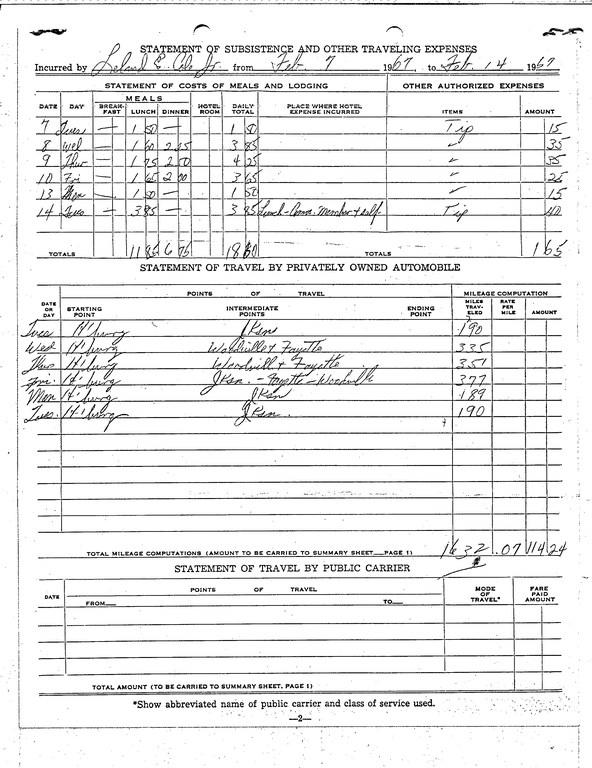 STATEMENT OF SUBSISTENCE AND OTHER TRAVELING EXPENSES
Incurred by Leland E. Cole Jr. from Feb. 7 1967, to Feb. 14 1967
STATEMENT OF COSTS OF MEALS AND LODGING OTHER AUTHORIZED EXPENSES
DATE DAY MEALS BREAK-FAST LUNCH DINNER HOTEL ROOM DAILY TOTAL PLACE WHERE HOTEL EXPENSE INCURRED ITEMS AMOUNT
7 Tues — 1 50 — 1 50 Tip 15
8 Wed — 1 60 2 25 3 85 ✓ 35
9 Thur — 1 75 2 50 4 25 ✓ 35
10 Fri — 1 65 2 00 3 65 ✓ 25
13 Mon — 1 50 — 1 50 ✓ 15
14 Tues — 3 85 — 3 85 Lunch - Comm. Member + self Tip 40
TOTALS 11 85 6 75 18 60 TOTALS 1 65
STATEMENT OF TRAVEL BY PRIVATELY OWNED AUTOMOBILE
DATE OR DAY POINTS OF TRAVEL STARTING POINT INTERMEDIATE POINTS ENDING POINT MILEAGE COMPUTATION MILES TRAV-ELED RATE PER MILE AMOUNT
Tues H'burg Jksn 190
Wed H'burg Woodville + Fayette 335
Thur H'burg Woodville + Fayette 351
Fri H'burg Jksn. - Fayette - Woodville 377
Mon H'burg Jksn 189
Tues. H'burg Jksn. 190
TOTAL MILEAGE COMPUTATIONS (AMOUNT TO BE CARRIED TO SUMMARY SHEET—PAGE 1) 1632 .07 114 24
STATEMENT OF TRAVEL BY PUBLIC CARRIER
DATE POINTS OF TRAVEL FROM TO MODE OF TRAVEL* FARE PAID AMOUNT
TOTAL AMOUNT (TO BE CARRIED TO SUMMARY SHEET, PAGE 1)
*Show abbreviated name of public carrier and class of service used.
—2—